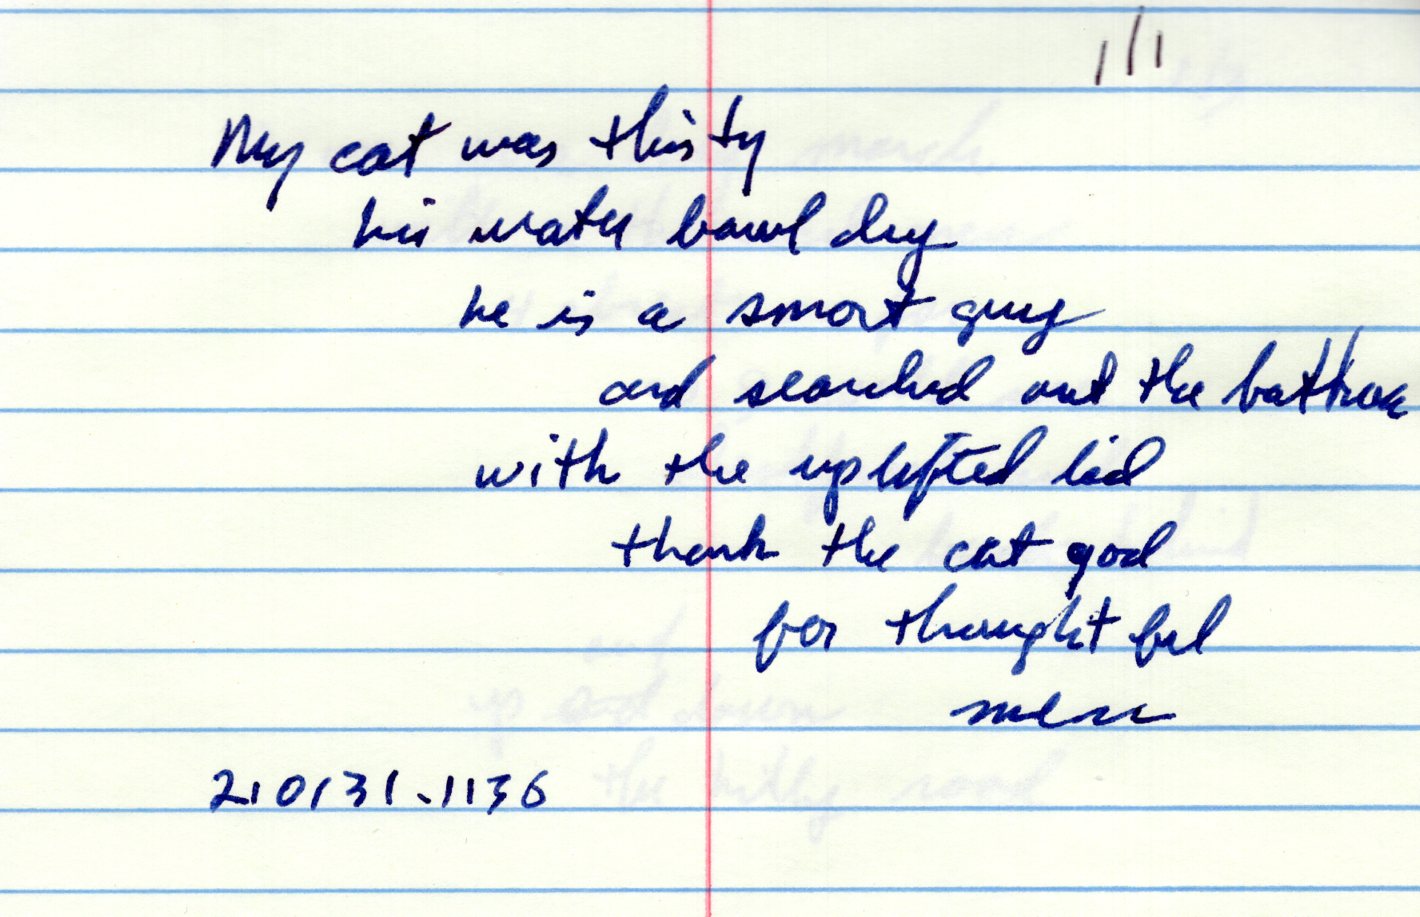 1/1
My cat was thirsty
his water bowl dry
he is a smart guy
and searched out the bathroom
with the uplifted lid
thank the cat god
for thoughtful
men
210131.1136